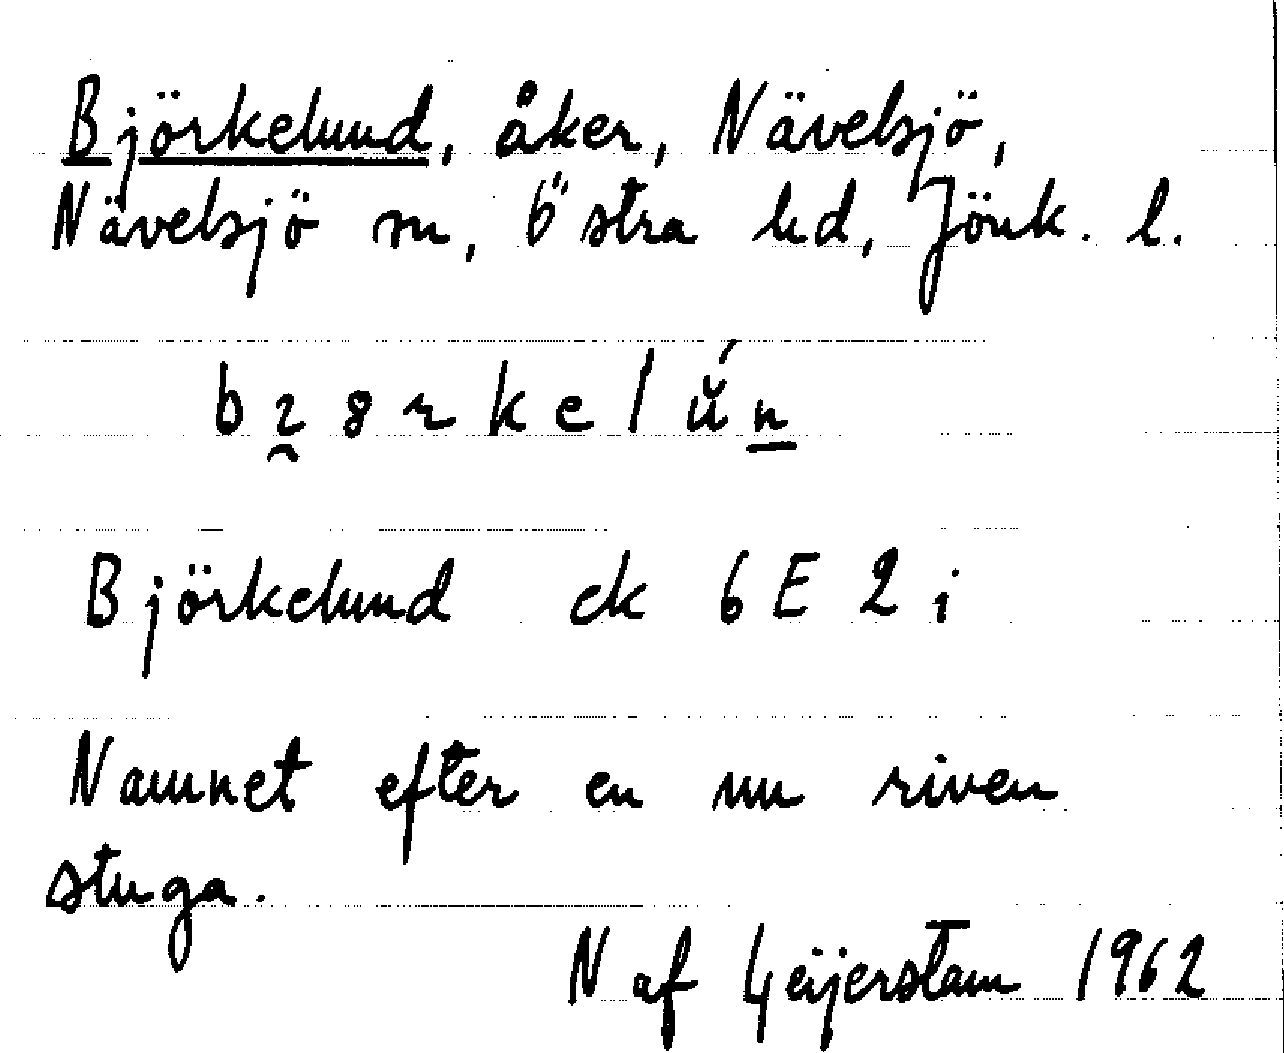 Björkelund, åker, Nävelsjö,
Nävelsjö sn, Östra hd, Jönk. l.
Björkelund ek 6E 2i
Namnet efter en nu riven
stuga.
N af Geijerstam 1962